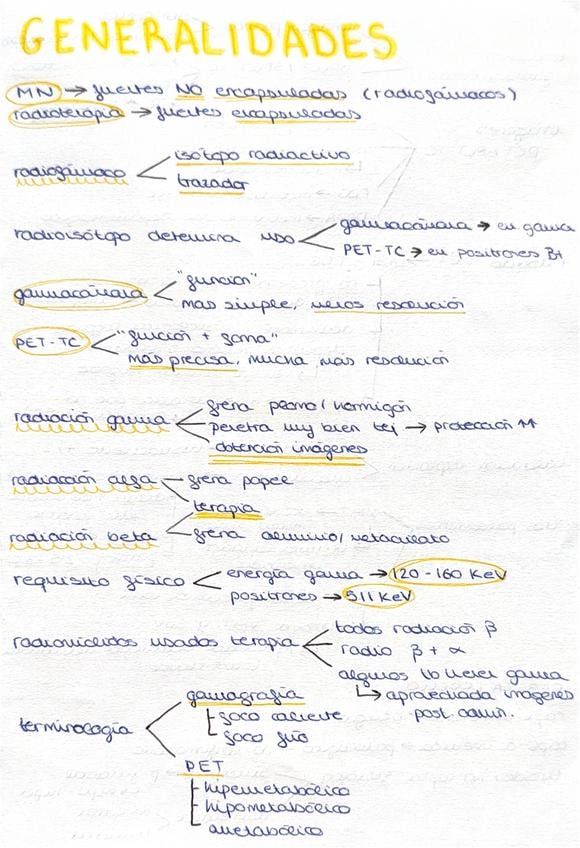 GENERALIDADES
MN → fuentes NO encapsuladas (radiofármacos)
radioterapia → fuentes encapsuladas
radiofármaco < isótopo radiactivo
trazador
radioisótopo determina uso < gammacámara → em gamma
PET-TC → em positrones β+
gammacámara < "función"
más simple, menos resolución
PET-TC < "función + forma"
más precisa, mucha más resolución
radiación gamma < frena plomo/hormigón
penetra muy bien tej → protección ↑↑
obtención imágenes
radiación alfa < frena papel
terapia
radiación beta < frena aluminio/metacrilato
requisito físico < energía gamma → 120-160 KeV
positrones → 511 KeV
radionúclidos usados terapia < todos radiación β
radio β + α
algunos tb tienen gamma
↳ aprovechada imágenes
post admin.
terminología < gamagrafía
foco caliente
foco frío
PET
hipermetabólico
hipometabólico
ametabólico